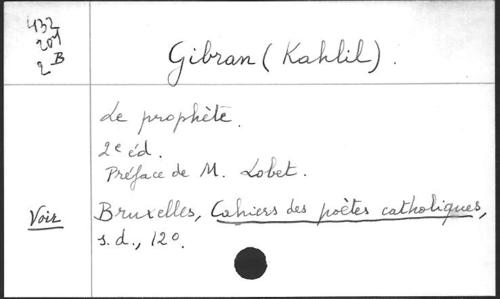 432
201
2 B
Gibran (Kahlil).
Le prophète.
2e éd.
Préface de M. Lobet.
Voir
Bruxelles, Cahiers des poètes catholiques,
s.d., 12°.